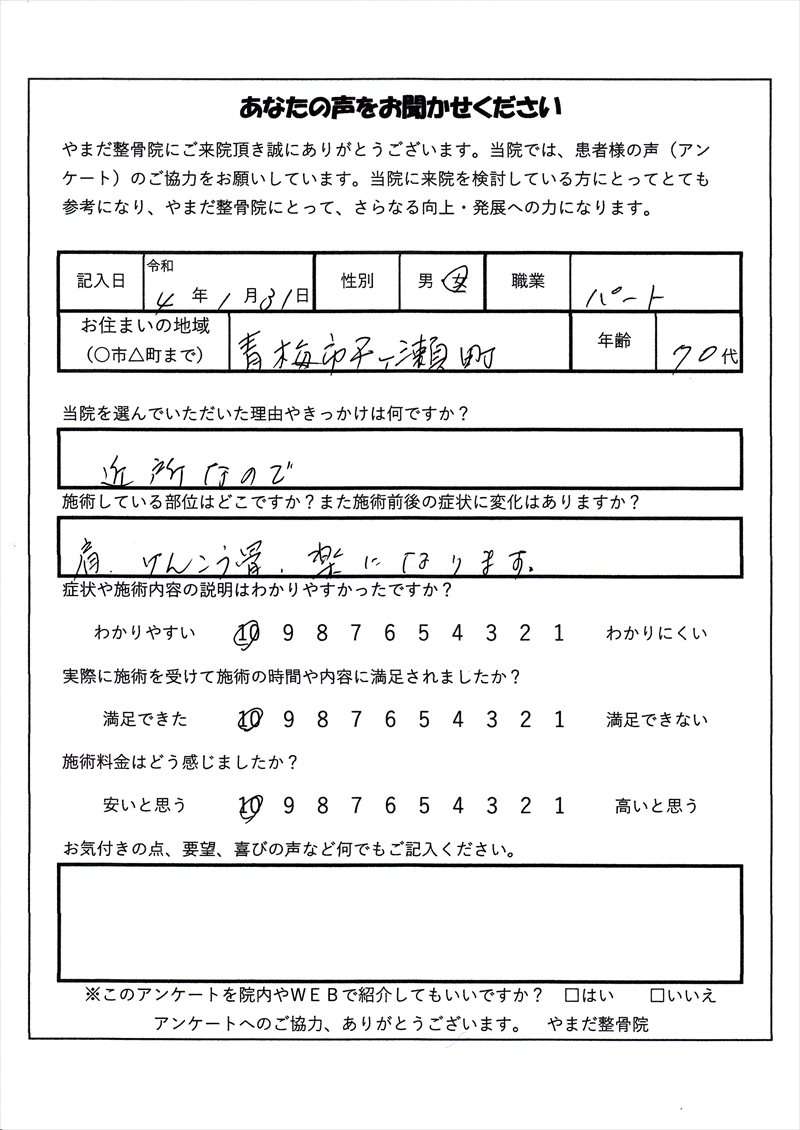 あなたの声をお聞かせください
やまだ整骨院にご来院頂き誠にありがとうございます。当院では、患者様の声（アン
ケート）のご協力をお願いしています。当院に来院を検討している方にとってとても
参考になり、やまだ整骨院にとって、さらなる向上・発展への力になります。
記入日 令和 4 年 1 月 31 日 性別 男 女 職業 パート
お住まいの地域
（〇市△町まで） 青梅市千ヶ瀬町 年齢 70代
当院を選んでいただいた理由やきっかけは何ですか？
近所なので
施術している部位はどこですか？また施術前後の症状に変化はありますか？
肩、けんこう骨、楽になります。
症状や施術内容の説明はわかりやすかったですか？
わかりやすい 10 9 8 7 6 5 4 3 2 1 わかりにくい
実際に施術を受けて施術の時間や内容に満足されましたか？
満足できた 10 9 8 7 6 5 4 3 2 1 満足できない
施術料金はどう感じましたか？
安いと思う 10 9 8 7 6 5 4 3 2 1 高いと思う
お気付きの点、要望、喜びの声など何でもご記入ください。
※このアンケートを院内やＷＥＢで紹介してもいいですか？ □はい □いいえ
アンケートへのご協力、ありがとうございます。 やまだ整骨院